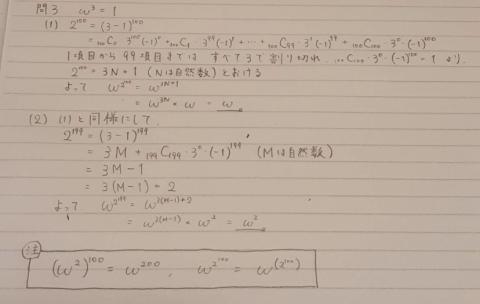 問3 ω³ = 1
(1) 2¹⁰⁰ = (3-1)¹⁰⁰
= ₁₀₀C₀ 3¹⁰⁰(-1)⁰ + ₁₀₀C₁ 3⁹⁹(-1)¹ + … + ₁₀₀C₉₉・3¹(-1)⁹⁹ + ₁₀₀C₁₀₀・3⁰・(-1)¹⁰⁰
1項目から99項目までは すべて3で割り切れ, ₁₀₀C₁₀₀・3⁰・(-1)¹⁰⁰ = 1 より
2¹⁰⁰ = 3N+1 (Nは自然数) とおける
よって ω^(2¹⁰⁰) = ω^(3N+1)
= ω^(3N) × ω = ω
(2) (1)と同様にして
2¹⁹⁹ = (3-1)¹⁹⁹
= 3M + ₁₉₉C₁₉₉・3⁰・(-1)¹⁹⁹ (Mは自然数)
= 3M - 1
= 3(M-1) + 2
よって ω^(2¹⁹⁹) = ω^(3(M-1)+2)
= ω^(3(M-1)) × ω² = ω²
注
(ω²)¹⁰⁰ = ω²⁰⁰, ω^2¹⁰⁰ = ω^(2¹⁰⁰)